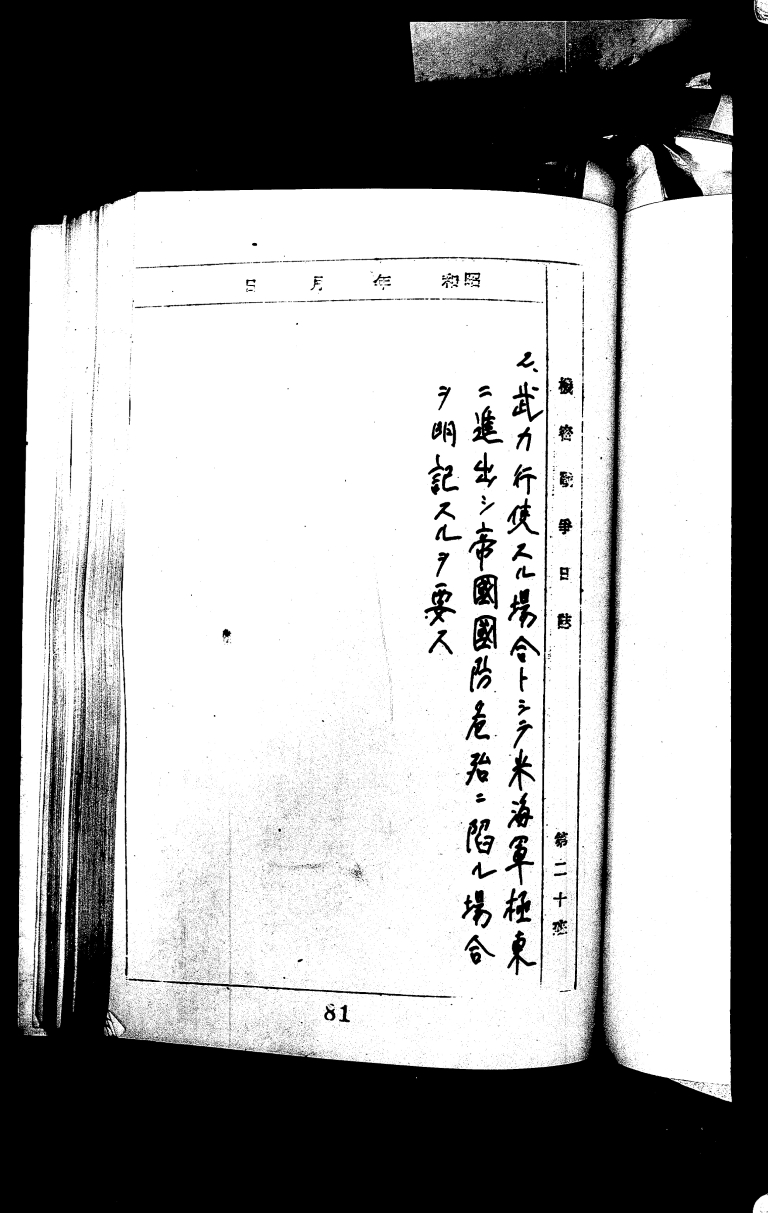 機密戰爭日誌
第二十班
昭和　年　月　日
2、武力行使スル場合トシテ米海軍極東
ニ進出シ帝國國防危殆ニ陷ル場合
ヲ明記スルヲ要ス
81